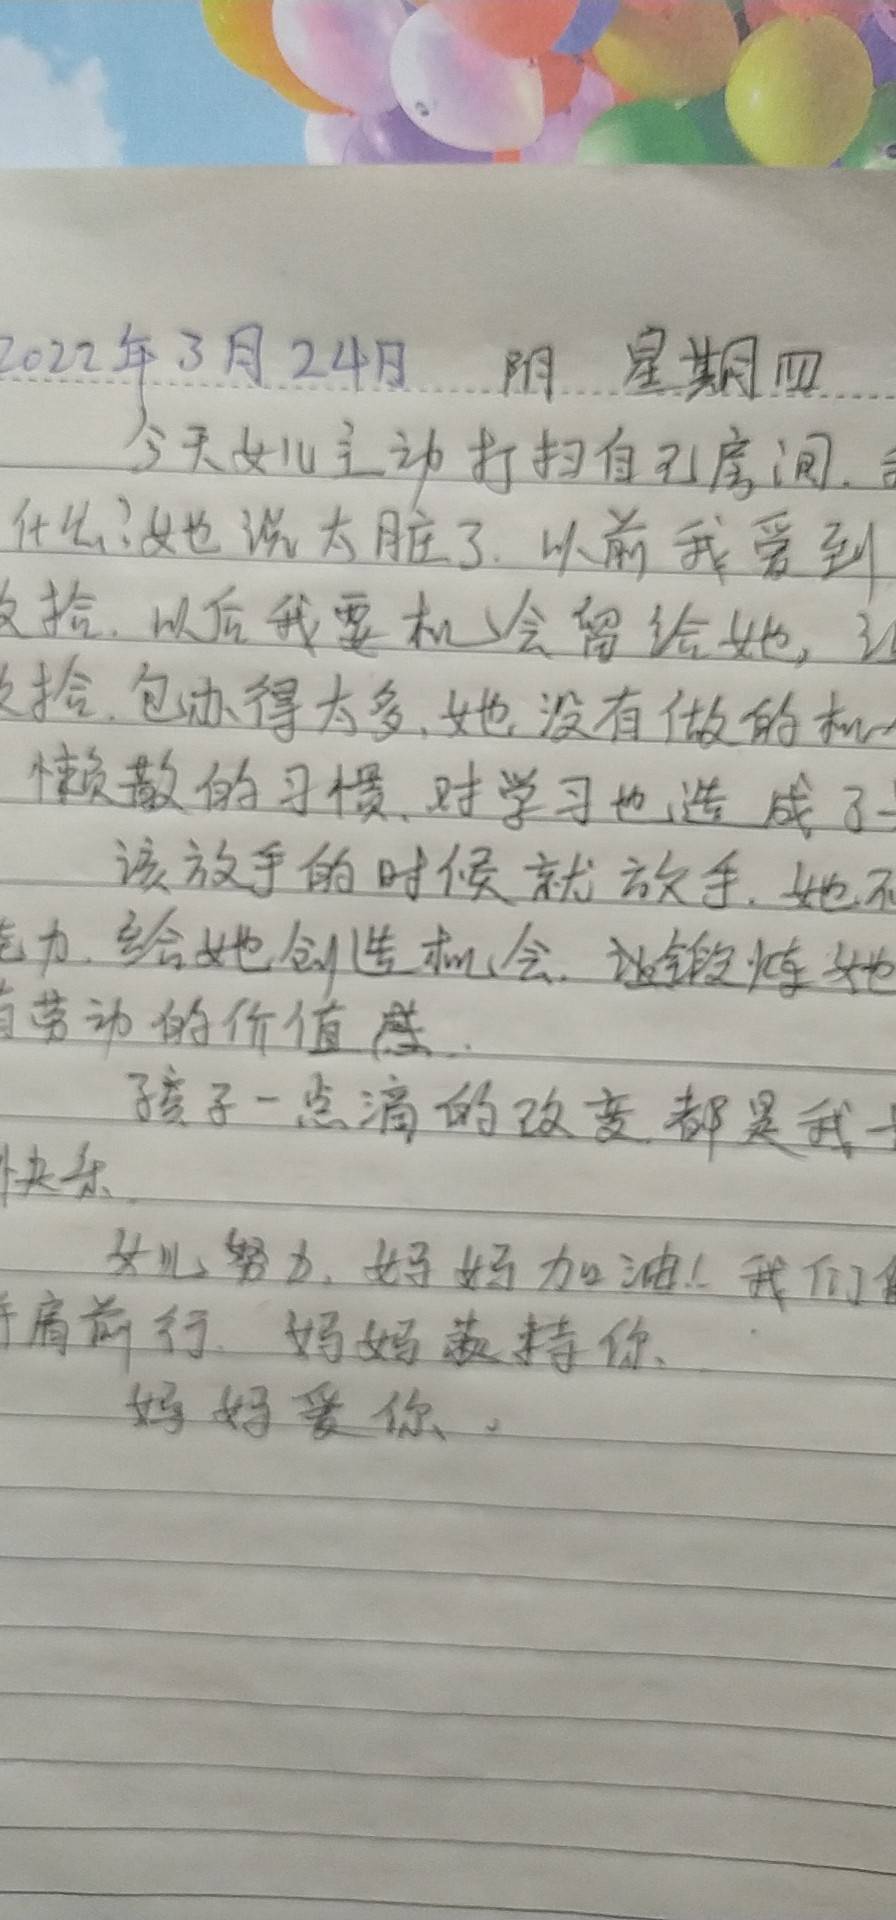 2022年3月24日 阴 星期四
今天女儿主动打扫自己房间.
什么?她说太脏了. 以前我爱到
拾. 以后我要机会留给她,
拾. 包办得太多, 她没有做的机
懒散的习惯, 对学习也造成了
该放手的时候就放手. 她不
力. 给她创造机会. 锻炼她
劳动的价值感.
孩子一点滴的改变都是我
快乐.
女儿努力, 妈妈加油! 我们
肩前行. 妈妈 持你.
妈妈爱你.